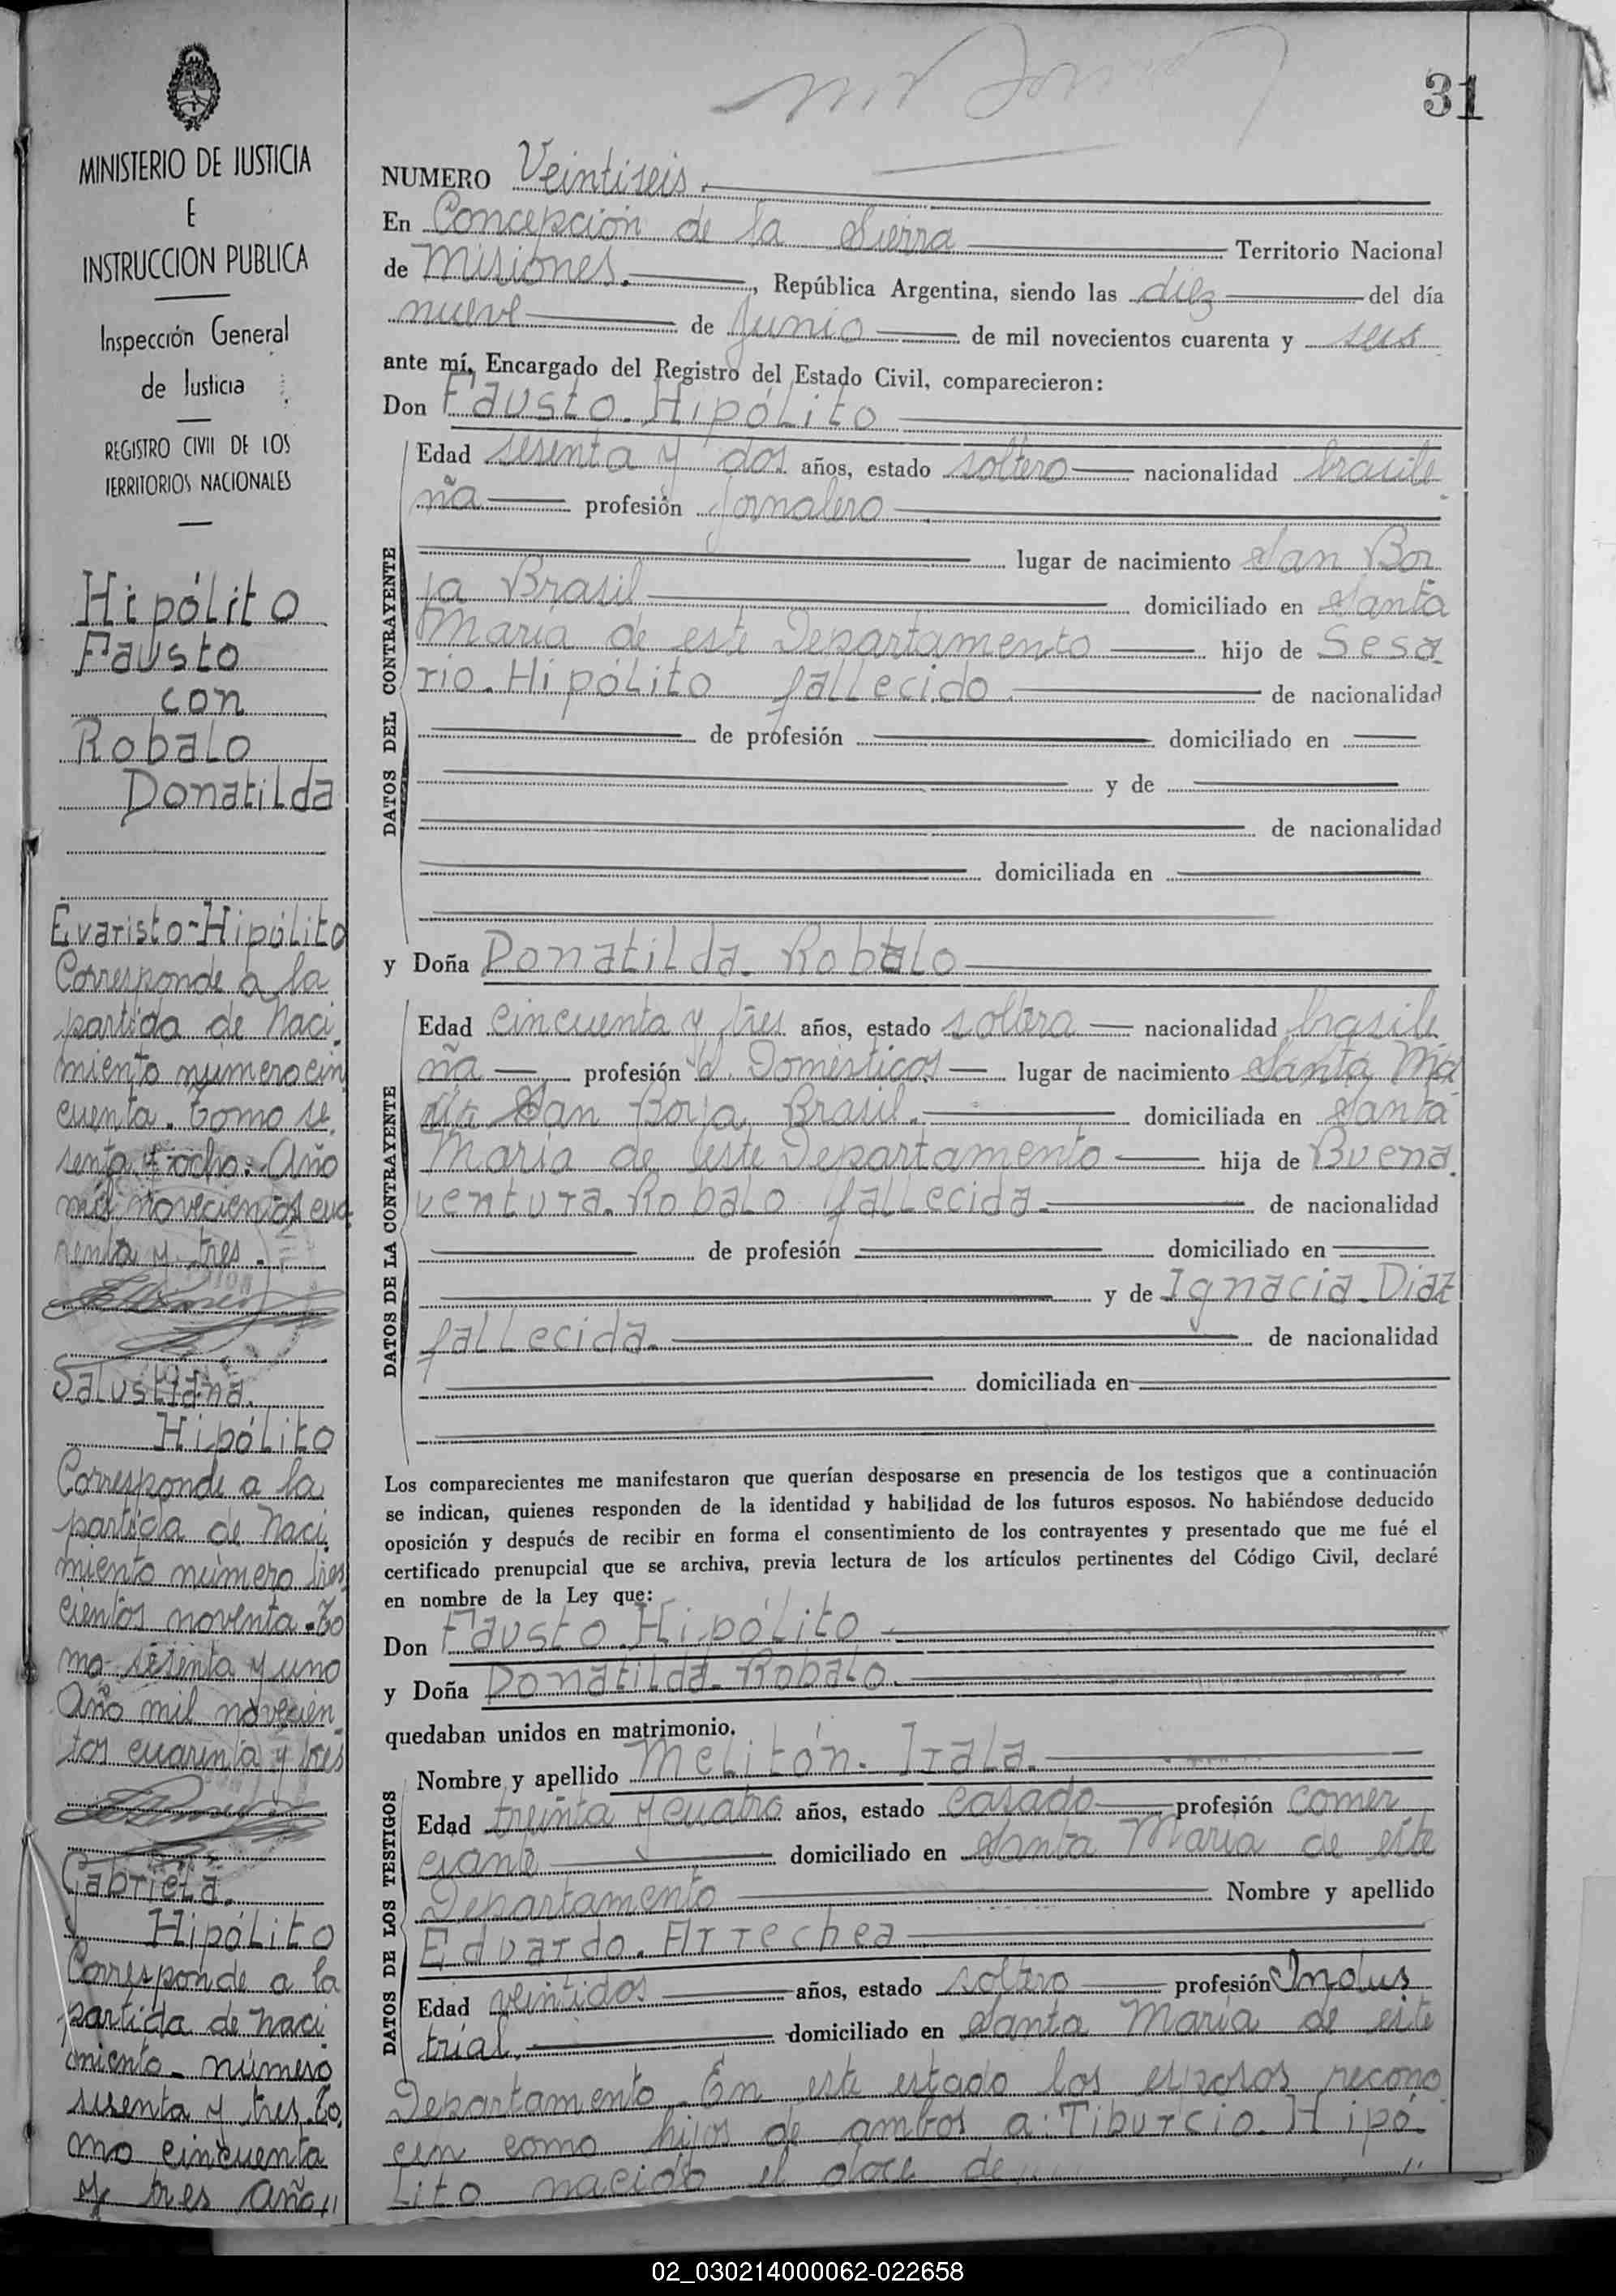 31
MINISTERIO DE JUSTICIA
E
INSTRUCCION PUBLICA
Inspección General
de Justicia
REGISTRO CIVIL DE LOS
TERRITORIOS NACIONALES
Hipólito
Fausto
con
Robalo
Donatilda
Evaristo-Hipólito
Corresponde a la
partida de Naci
miento número cin
cuenta. Tomo se.
senta y ocho. Año
mil novecientos cua
renta y tres.
Salustiana.
Hipólito
Corresponde a la
partida de Naci.
miento número tres
cientos noventa. To
mo setenta y uno
Año mil novecien
tos cuarenta y tres
Gabriela.
Hipólito
Corresponde a la
partida de Naci
miento número
sesenta y tres. To.
mo cincuenta
y tres Año,,
NUMERO Veintiseis.
En Concepción de la Sierra Territorio Nacional
de Misiones. , República Argentina, siendo las diez del día
nueve de Junio de mil novecientos cuarenta y seis
ante mí, Encargado del Registro del Estado Civil, comparecieron:
Don Fausto. Hipólito
DATOS DEL CONTRAYENTE
Edad sesenta y dos años, estado soltero nacionalidad brasile
ña profesión Jornalero
lugar de nacimiento San Bor
ja Brasil domiciliado en Santa
María de este Departamento hijo de Sesa
rio. Hipólito fallecido de nacionalidad
de profesión domiciliado en
y de
de nacionalidad
domiciliada en
y Doña Donatilda. Robalo
DATOS DE LA CONTRAYENTE
Edad cincuenta y tres años, estado soltera nacionalidad brasile
ña profesión Domésticos lugar de nacimiento Santa Ma
ría San Borja Brasil. domiciliada en Santa
María de este Departamento hija de Buena.
ventura. Robalo fallecida. de nacionalidad
de profesión domiciliado en
y de Ignacia. Diaz
fallecida. de nacionalidad
domiciliada en
Los comparecientes me manifestaron que querían desposarse en presencia de los testigos que a continuación
se indican, quienes responden de la identidad y habilidad de los futuros esposos. No habiéndose deducido
oposición y después de recibir en forma el consentimiento de los contrayentes y presentado que me fué el
certificado prenupcial que se archiva, previa lectura de los artículos pertinentes del Código Civil, declaré
en nombre de la Ley que:
Don Fausto. Hipólito
y Doña Donatilda. Robalo.
quedaban unidos en matrimonio.
DATOS DE LOS TESTIGOS
Nombre y apellido Melitón. Irala.
Edad treinta y cuatro años, estado casado profesión comer
ciante domiciliado en Santa María de este
Departamento Nombre y apellido
Eduardo. Arrechea
Edad veintidos años, estado soltero profesión Indus
trial. domiciliado en Santa María de este
Departamento. En este estado los esposos recono
cen como hijos de ambos a: Tiburcio. Hipó.
lito nacido el doce de
02_030214000062-022658